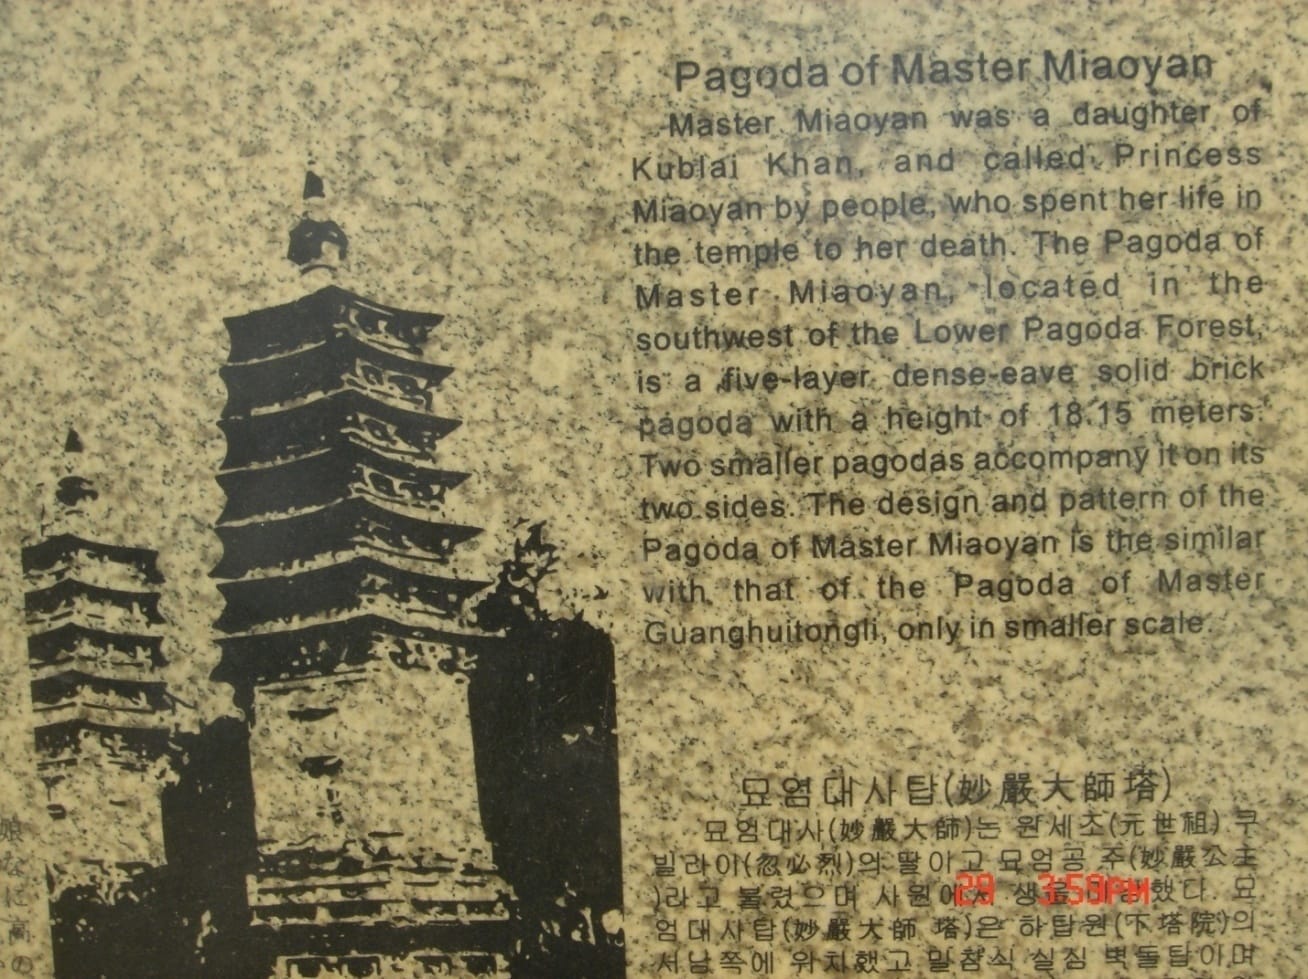 Pagoda of Master Miaoyan
Master Miaoyan was a daughter of
Kublai Khan, and called Princess
Miaoyan by people, who spent her life in
the temple to her death. The Pagoda of
Master Miaoyan, located in the
southwest of the Lower Pagoda Forest,
is a five-layer dense-eave solid brick
pagoda with a height of 18.15 meters.
Two smaller pagodas accompany it on its
two sides. The design and pattern of the
Pagoda of Master Miaoyan is the similar
with that of the Pagoda of Master
Guanghuitongli, only in smaller scale.
묘엄대사탑(妙嚴大師塔)
묘엄대사(妙嚴大師)는 원세조(元世祖) 쿠
빌라이(忽必烈)의 딸이고 묘엄공 주(妙嚴公主
)라고 불렸으며 사원에서 생을 했다. 묘
엄대사탑(妙嚴大師 塔)은 하탑원(下塔院)의
서남쪽에 위치했고 밀첨식 실심 벽돌탑이며
娘
な
に
高
の
29 3:59PM